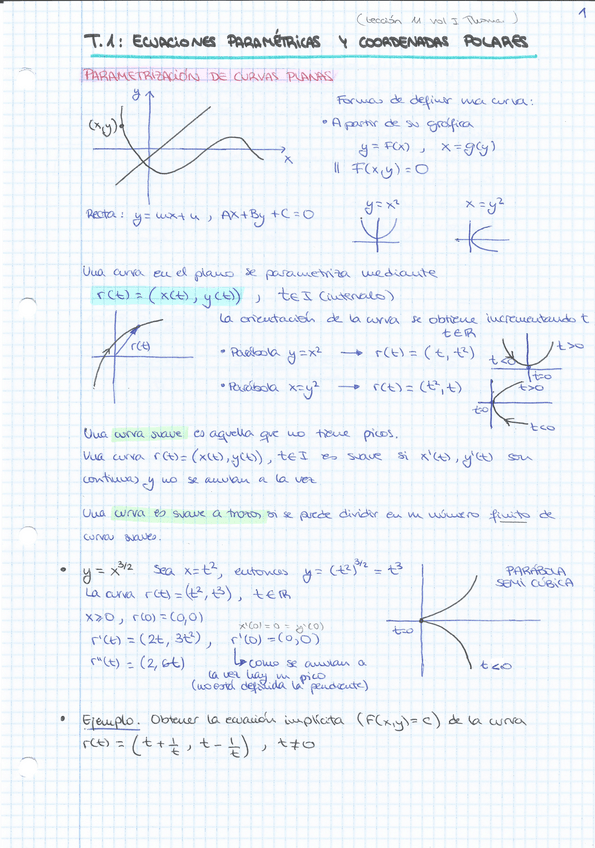 (Lección 11 Vol I Thomas)
1
T.1: ECUACIONES PARAMÉTRICAS Y COORDENADAS POLARES
PARAMETRIZACIÓN DE CURVAS PLANAS
y
(x,y)
x
Formas de definir una curva:
• A partir de su gráfica
y = F(x) , x = g(y)
|| F(x,y) = 0
Recta: y = mx+n , Ax+By+C = 0
y = x²
x = y²
Una curva en el plano se parametriza mediante
r(t) = (x(t), y(t)) , t∈I (intervalo)
La orientación de la curva se obtiene incrementando t
t∈ℝ
r(t)
• Parábola y=x² → r(t) = (t, t²)
t<0
t>0
t=0
• Parábola x=y² → r(t) = (t², t)
t>0
t=0
t<0
Una curva suave es aquella que no tiene picos.
Una curva r(t)=(x(t),y(t)), t∈I es suave si x'(t), y'(t) son
continuas y no se anulan a la vez
Una curva es suave a trozos si se puede dividir en un número finito de
curvas suaves.
• y = x^3/2 Sea x=t², entonces y = (t²)^3/2 = t³
La curva r(t) = (t², t³), t∈ℝ
x≥0, r(0) = (0,0)
x'(0) = 0 = y'(0)
r'(t) = (2t, 3t²), r'(0) = (0,0)
r''(t) = (2, 6t)
↳ como se anulan a
la vez hay un pico
(no está definida la pendiente)
PARÁBOLA
SEMICÚBICA
t=0
t<0
• Ejemplo. Obtener la ecuación implícita (F(x,y)=c) de la curva
r(t) = (t + 1/t , t - 1/t) , t≠0